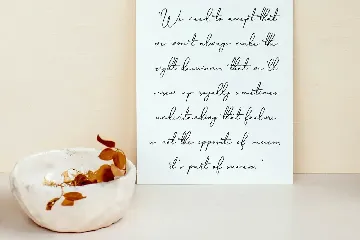 "We need to accept that
we won't always make the
right decisions, that we'll
screw up royally sometimes
understanding that failure
is not the opposite of success,
it's part of success."